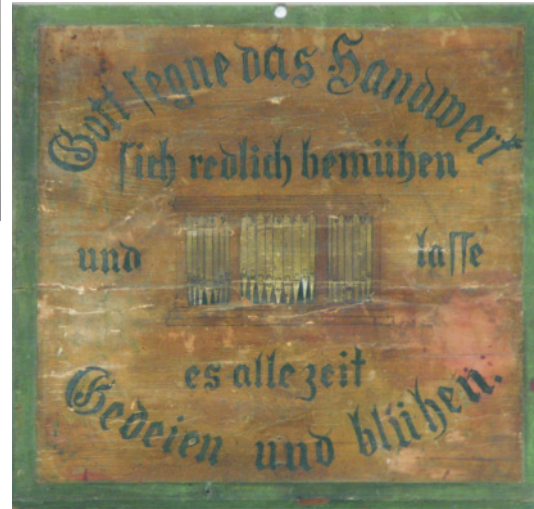 Gott segne das Handwerk
sich redlich bemühen
und lasse
es alle zeit
Gedeien und blühen.